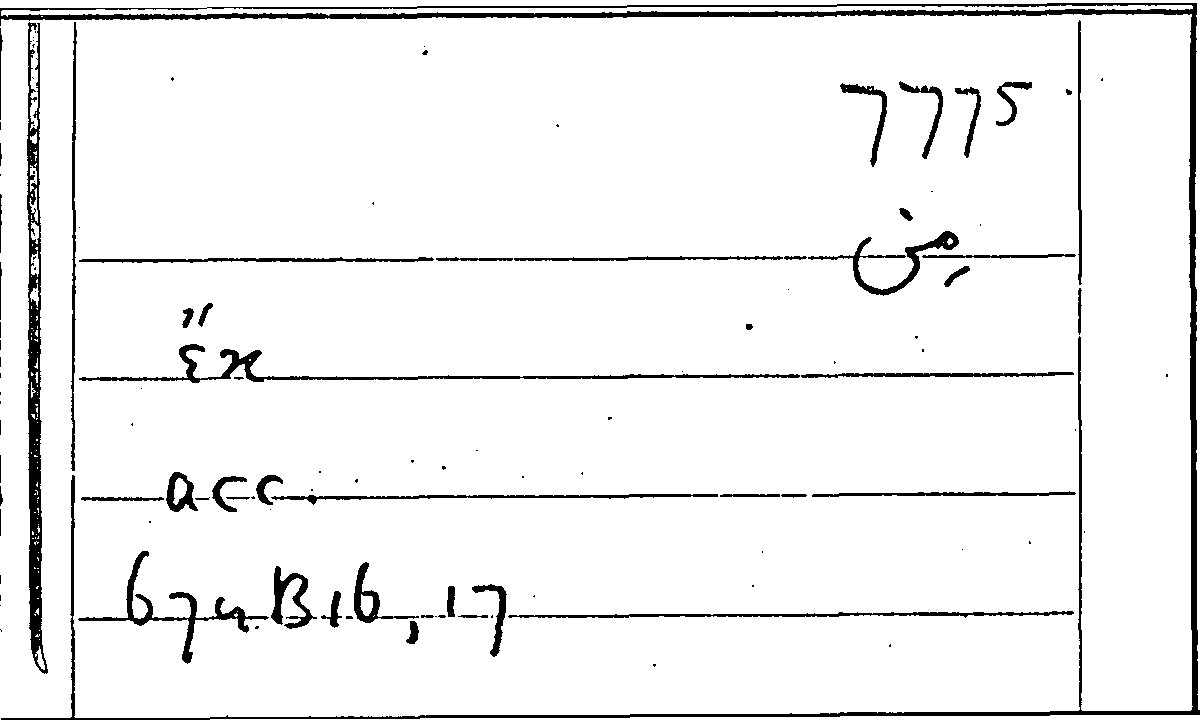 7775
مِن
ἔκ
acc.
674B16, 17